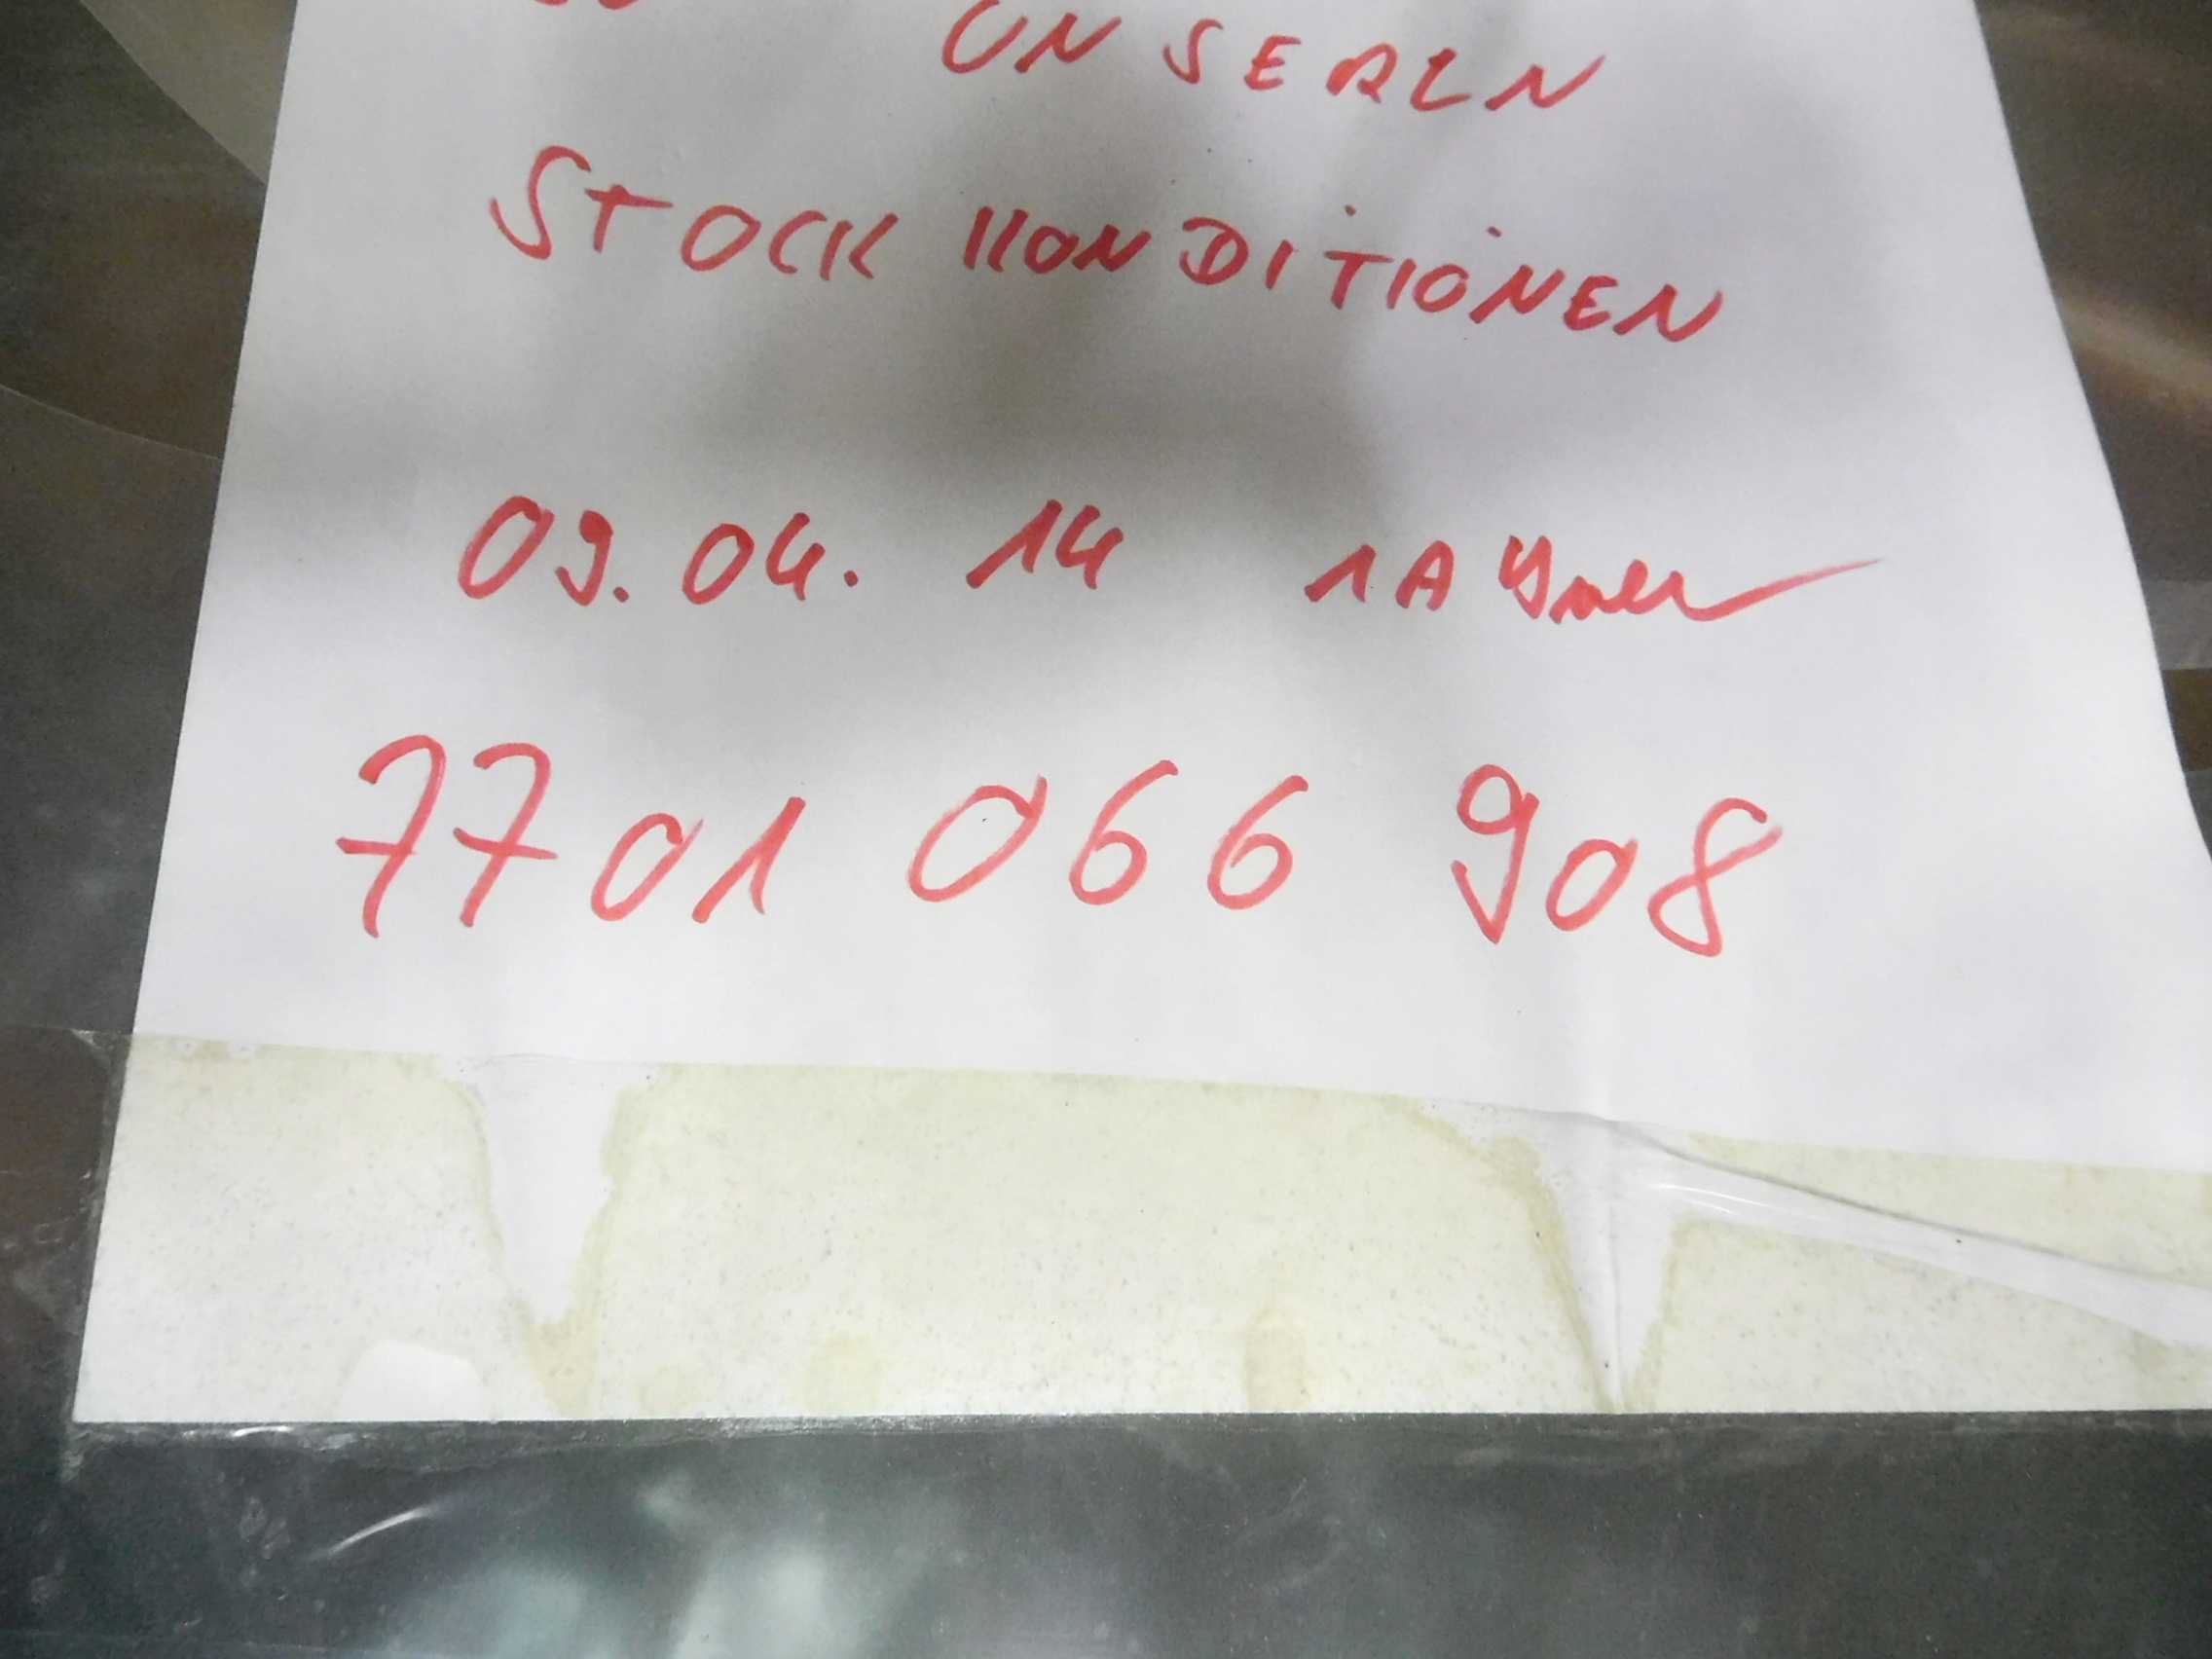 UNSEREN
STOCK KONDITIONEN
09.04.14 1A
7701 066 908